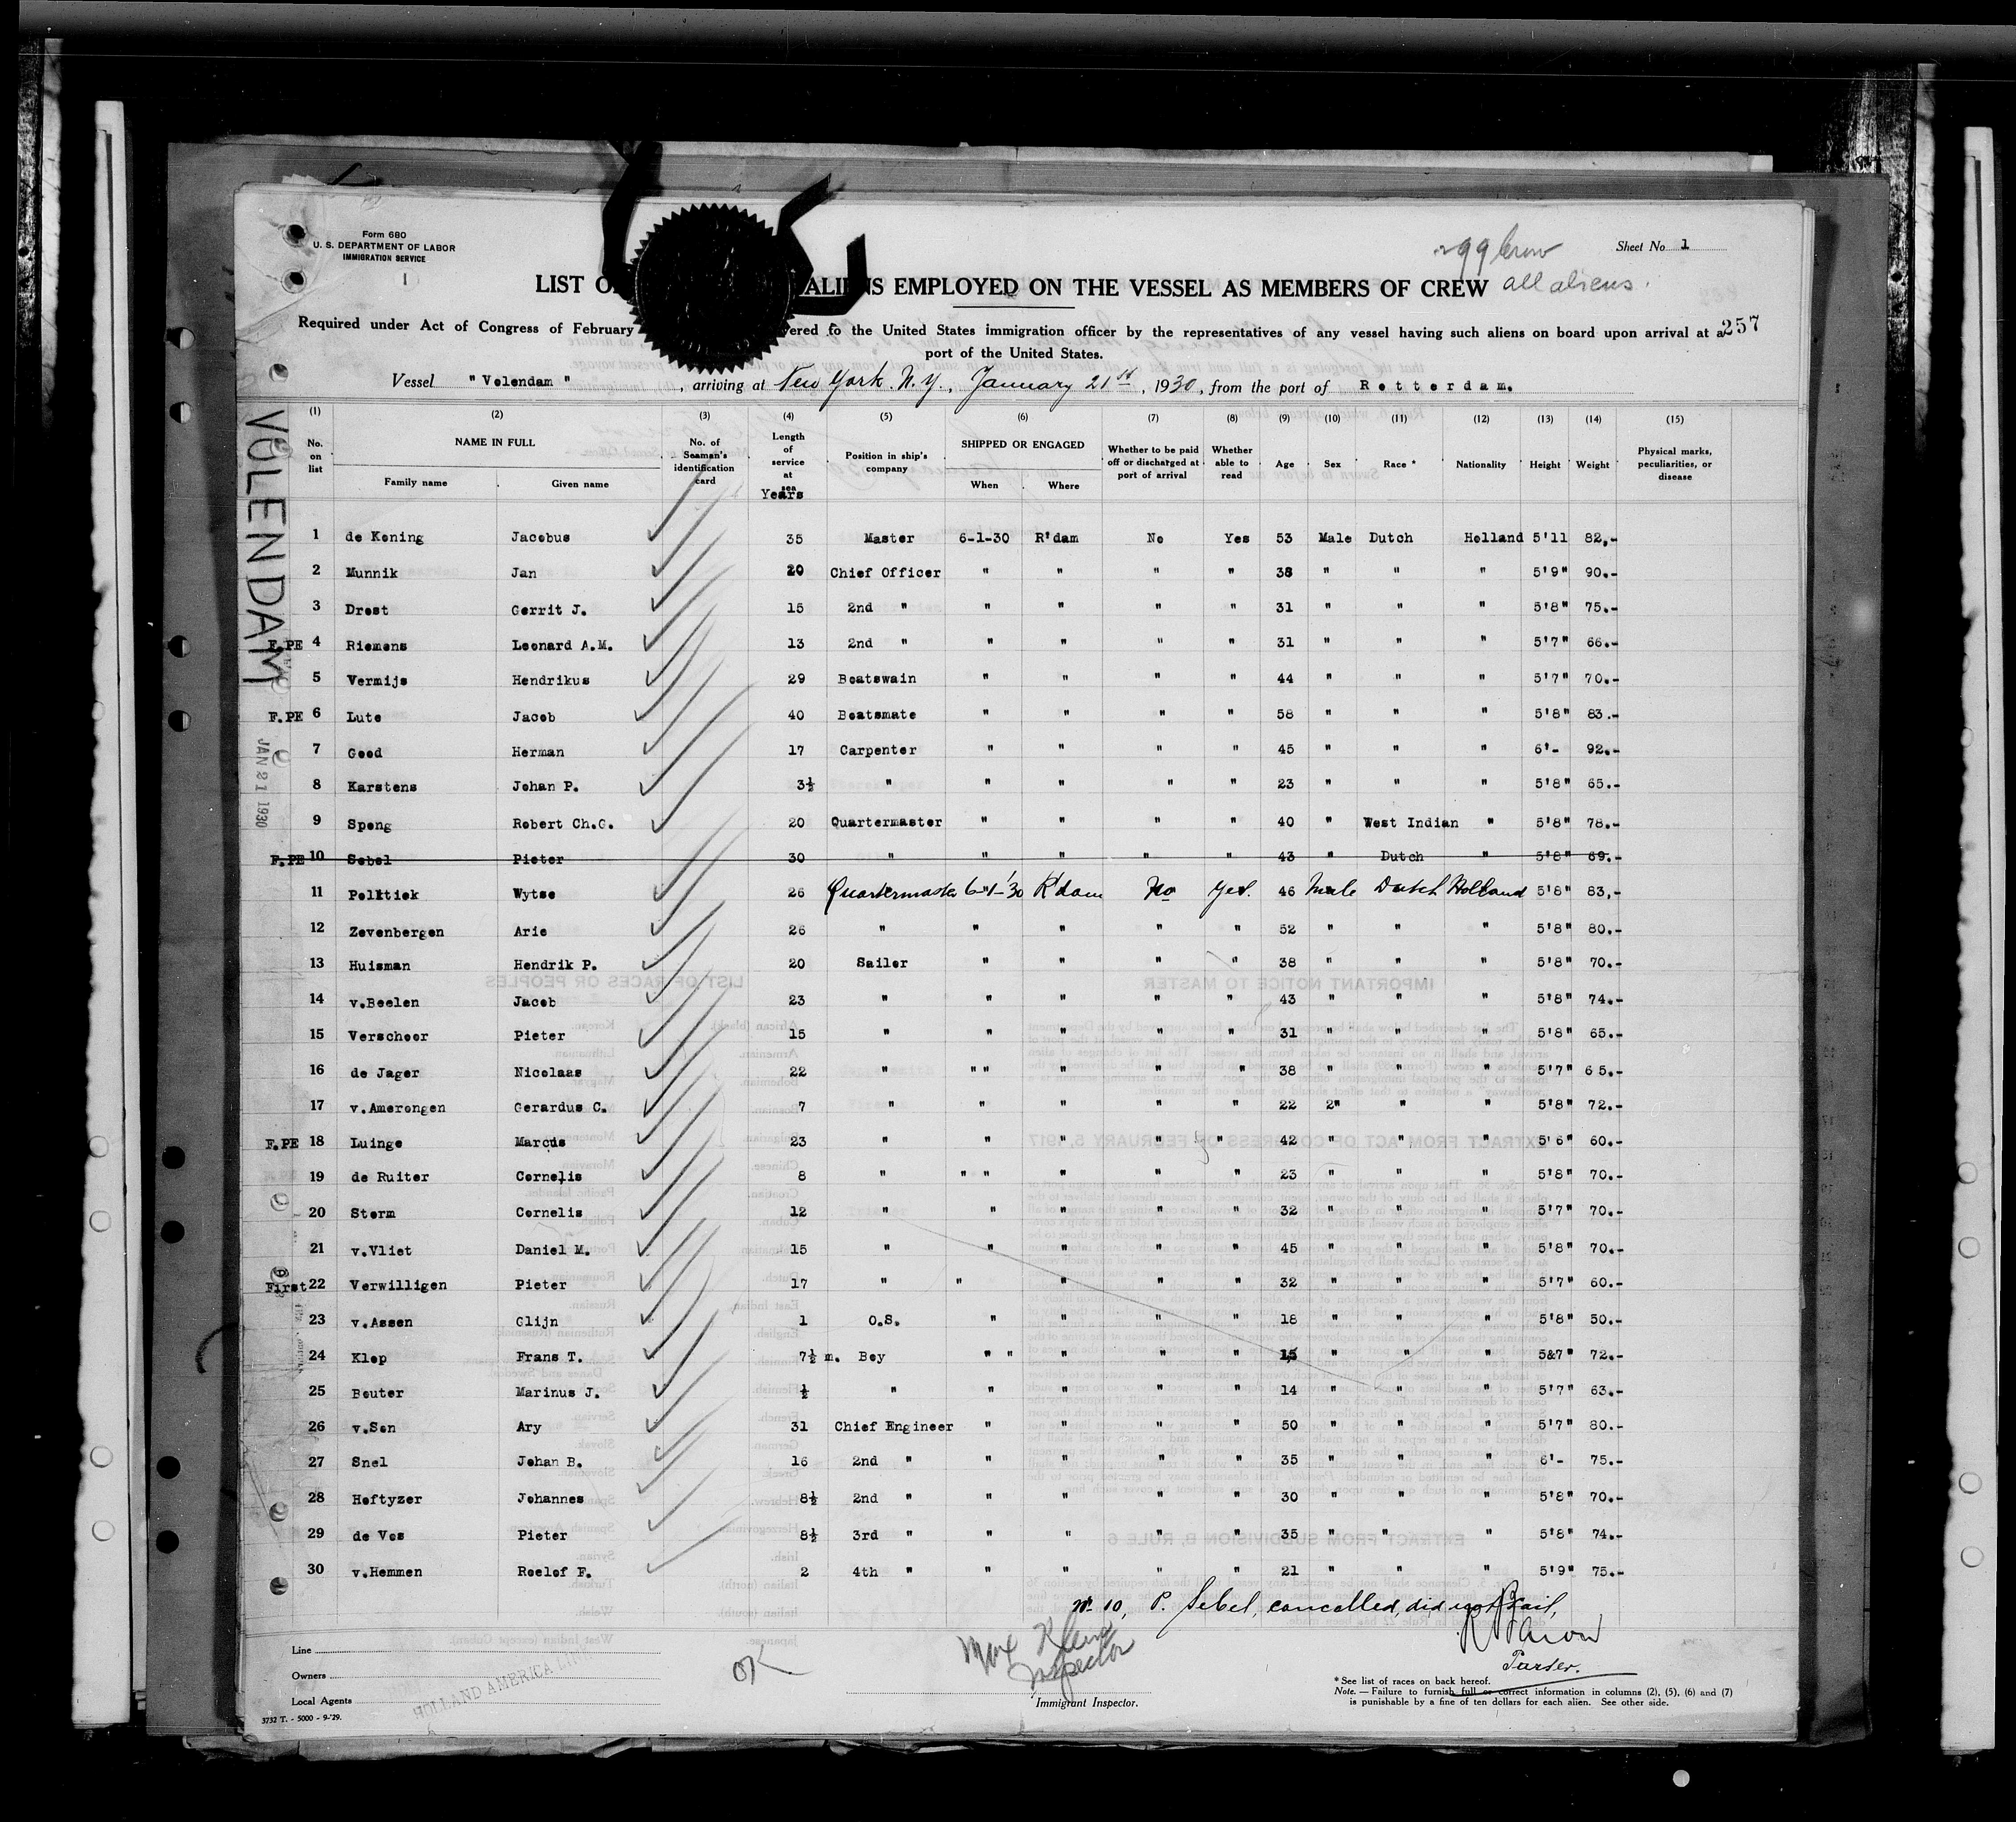 Form 680
U. S. DEPARTMENT OF LABOR
IMMIGRATION SERVICE
1
299 Crew
all aliens.
Sheet No. 1
LIST O ALIENS EMPLOYED ON THE VESSEL AS MEMBERS OF CREW
257
Required under Act of Congress of February vered to the United States immigration officer by the representatives of any vessel having such aliens on board upon arrival at a
port of the United States.
Vessel "Volendam", arriving at New York. N.Y., January 21st, 1930, from the port of Rotterdam.
VOLENDAM
JAN 21 1930
(1) (2) (3) (4) (5) (6) (7) (8) (9) (10) (11) (12) (13) (14) (15)
No. on list
NAME IN FULL
Family name Given name
No. of Seaman's identification card
Length of service at sea
Years
Position in ship's company
SHIPPED OR ENGAGED
When Where
Whether to be paid off or discharged at port of arrival
Whether able to read
Age
Sex
Race *
Nationality
Height
Weight
Physical marks, peculiarities, or disease
1 de Koning Jacobus 35 Master 6-1-30 R'dam No Yes 53 Male Dutch Holland 5'11 82,-
2 Munnik Jan 20 Chief Officer " " " " 38 " " " 5'9" 90.-
3 Drost Gerrit J. 15 2nd " " " " " 31 " " " 5'8" 75.-
F.PE 4 Riemens Leonard A.M. 13 2nd " " " " " 31 " " " 5'7" 66.-
5 Vermijs Hendrikus 29 Boatswain " " " " 44 " " " 5'7" 70.-
F.PE 6 Lute Jacob 40 Boatsmate " " " " 58 " " " 5'8" 83.-
7 Good Herman 17 Carpenter " " " " 45 " " " 6'- 92.-
8 Karstens Johan P. 3½ " " " " " 23 " " " 5'8" 65.-
9 Spong Robert Ch.G. 20 Quartermaster " " " " 40 " West Indian " 5'8" 78.-
F.PE 10 Sebel Pieter 30 " " " " " 43 " Dutch " 5'8" 69.-
11 Polktiek Wytse 26 Quartermaster 6-1-30 R'dam No Yes. 46 Male Dutch Holland 5'8" 83,-
12 Zevenbergen Arie 26 " " " " " 52 " " " 5'8" 80.-
13 Huisman Hendrik P. 20 Sailor " " " " 38 " " " 5'8" 70.-
14 v.Beelen Jacob 23 " " " " " 43 " " " 5'8" 74.-
15 Verschoor Pieter 15 " " " " " 31 " " " 5'8" 65.-
16 de Jager Nicolaas 22 " " " " " " 38 " " " 5'7" 65.-
17 v.Amerongen Gerardus C. 7 " " " " " 22 2" " " 5'8" 72.-
F.PE 18 Luinge Marcus 23 " " " " " 42 " " " 5'6" 60.-
19 de Ruiter Cornelis 8 " " " " " " 23 " " " 5'8" 70.-
20 Storm Cornelis 12 " " " " " 32 " " " 5'7" 70.-
21 v.Vliet Daniel M. 15 " " " " " 45 " " " 5'8" 70.-
First 22 Verwilligen Pieter 17 " " " " " 32 " " " 5'7" 60.-
23 v.Assen Glijn 1 O.S. " " " " 18 " " " 5'8" 50.-
24 Klop Frans T. 7½ m. Boy " " " " " 15 " " " 5&7" 72.-
25 Bouter Marinus J. ½ " " " " " 14 " " " 5'7" 63.-
26 v.Son Ary 31 Chief Engineer " " " " 50 " " " 5'7" 80.-
27 Snel Johan B. 16 2nd " " " " " 35 " " " 6'- 75.-
28 Hoftyzer Johannes 8½ 2nd " " " " " 30 " " " 5'8" 70.-
29 de Vos Pieter 8½ 3rd " " " " " 35 " " " 5'8" 74.-
30 v.Hemmen Roelof F. 2 4th " " " " " 21 " " " 5'9" 75.-
No 10, P. Sebel, cancelled, did not sail,
Purser.
Line
Owners
Local Agents
HOLLAND AMERICA LINE
3732 T. - 5000 - 9-'29.
OK
Max Klein
Inspector
Immigrant Inspector.
* See list of races on back hereof.
Note. — Failure to furnish full or correct information in columns (2), (5), (6) and (7)
is punishable by a fine of ten dollars for each alien. See other side.